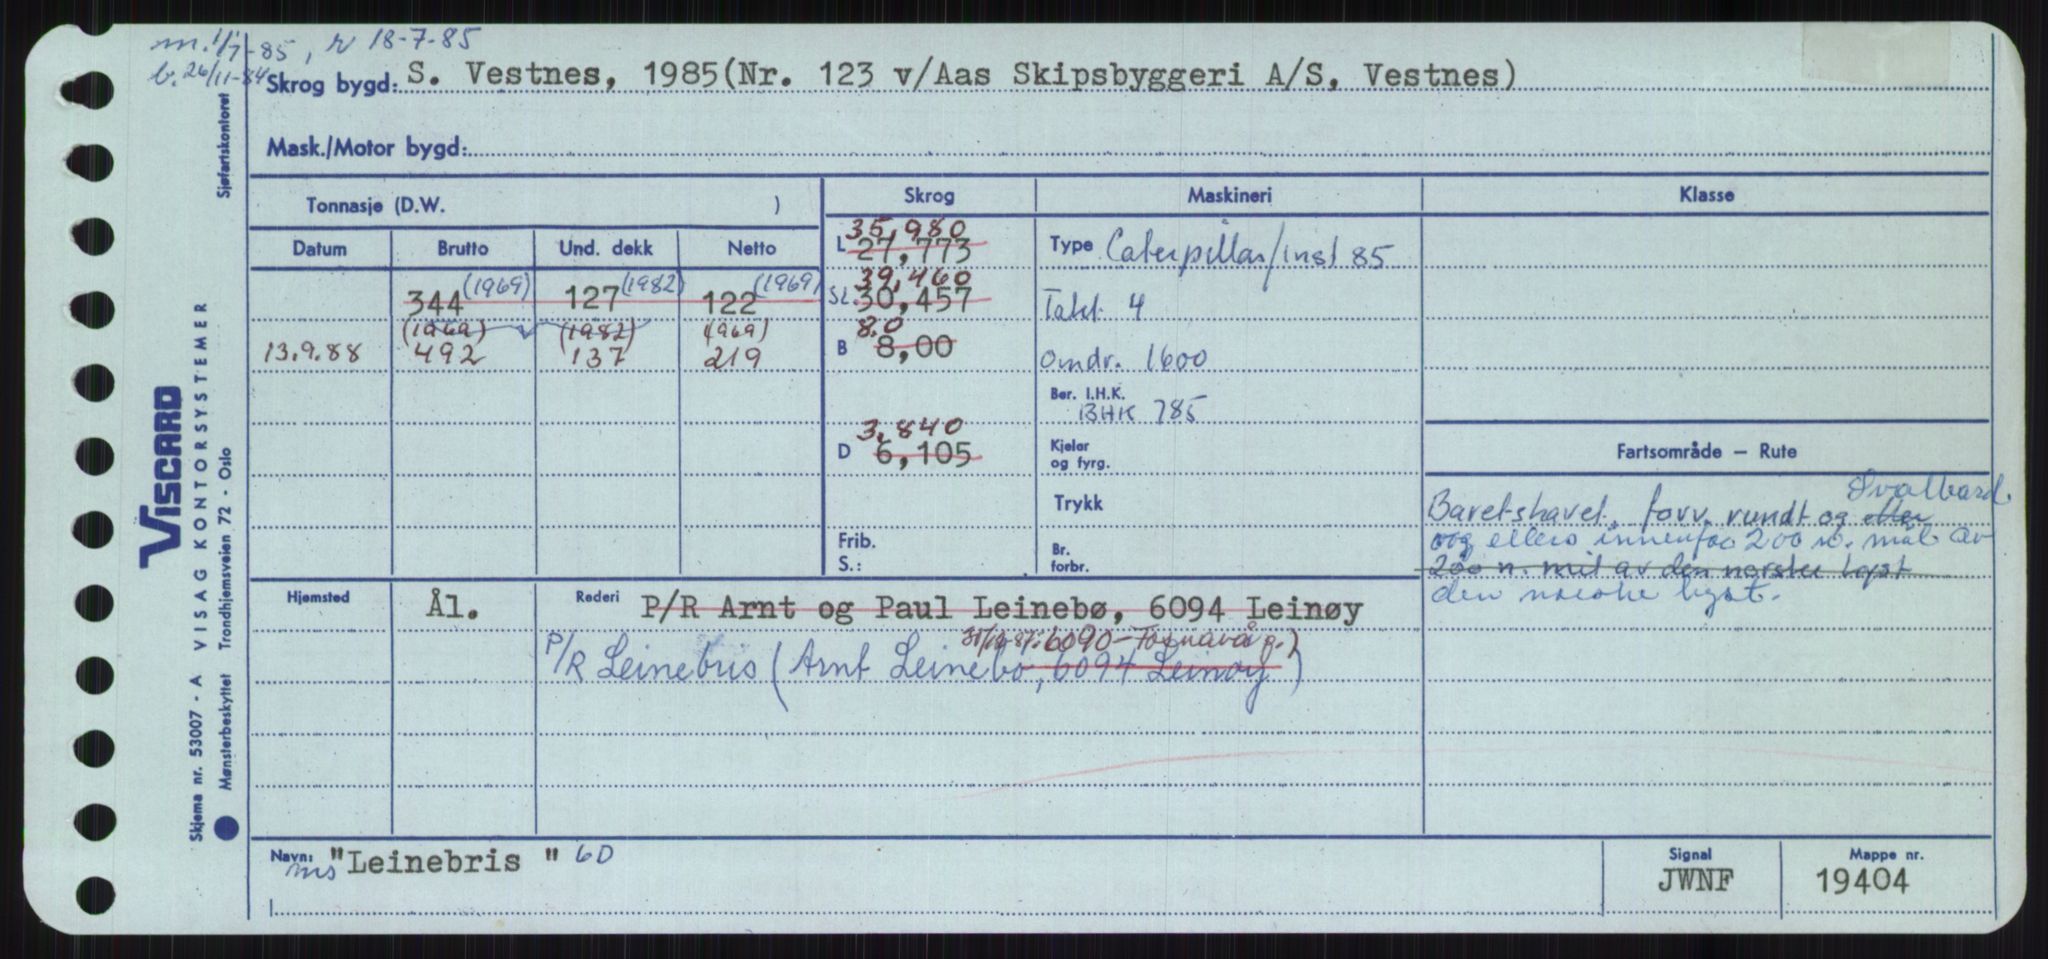 m. 1/7-85, r 18-7-85
b. 26/11-84
Skrog bygd: S. Vestnes, 1985(Nr. 123 v/Aas Skipsbyggeri A/S, Vestnes)
Mask./Motor bygd:
Sjøfartskontoret
VISCARD
VISAG KONTORSYSTEMER
Trondhjemsveien 72 - Oslo
Skjema nr. 53007 - A
Mønsterbeskyttet
Tonnasje (D.W. )
Skrog
Maskineri
Klasse
Datum Brutto Und. dekk Netto
344 (1969) 127 (1982) 122 (1969)
(1969) (1982) (1969)
13.9.88 492 137 219
35,980
L 27,773
39,460
SL. 30,457
8.0
B 8,00
3,840
D 6,105
Frib.
S.:
Type Caterpillar/inst 85
Takt. 4
omdr. 1600
Ber. I.H.K.
BHK 785
Kjeler
og fyrg.
Trykk
Br.
forbr.
Fartsområde – Rute
Svalbard
Baretshavet, forv. rundt og eller
og ellers innenfor 200 n. mil av
200 n. mil av den norske kyst
den norske kyst.
Hjemsted Ål. Rederi P/R Arnt og Paul Leinebø, 6094 Leinøy
6090 - Fosnavåg.)
P/R Leinebris (Arnt Leinebø, 6094 Leinøy)
Navn: ms "Leinebris " 6D
Signal
JWNF
Mappe nr.
19404